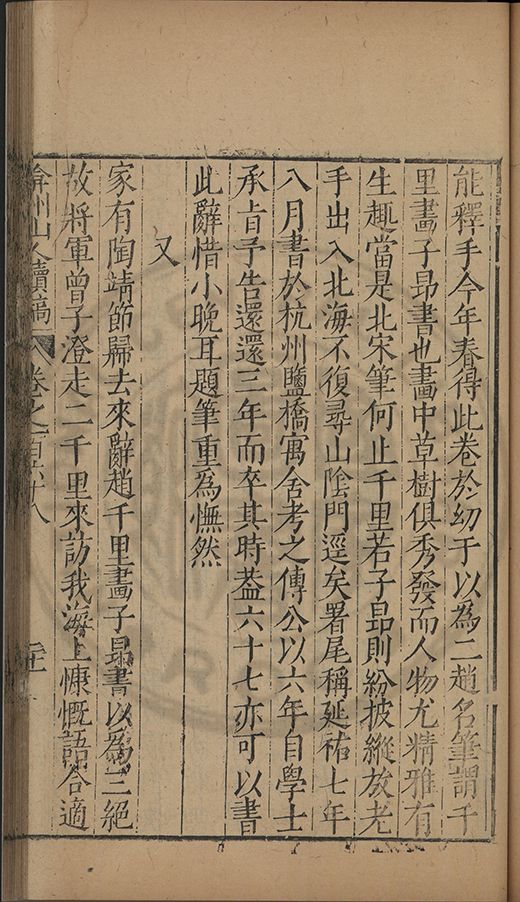 能釋手今年春得此卷於幼于以為二趙名筆謂千
里畫子昂書也畫中草樹俱秀發而人物尤精雅有
生趣當是北宋筆何止千里若子昂則紛披縱放老
手出入北海不復尋山陰門逕矣署尾稱延祐七年
八月書於杭州鹽橋寓舍考之傳公以六年自學士
承旨予告還還三年而卒其時葢六十七亦可以書
此辭惜小晚耳題筆重為憮然
又
家有陶靖節歸去來辭趙千里畫子昂書以為三絕
故將軍曾子澄走二千里來訪我海上慷慨語合適
弇州山人續稿 卷之一百六十八